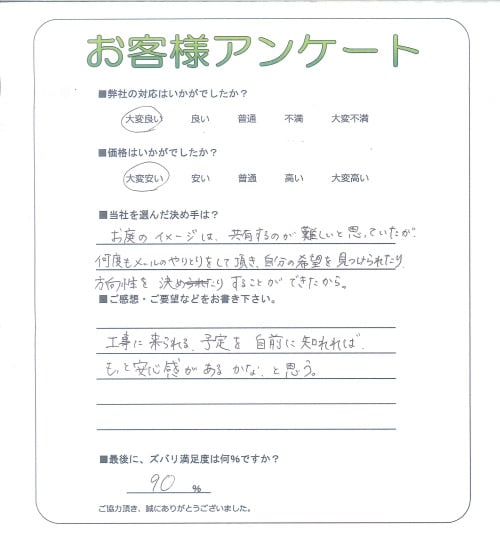 お客様アンケート
■弊社の対応はいかがでしたか？
大変良い 良い 普通 不満 大変不満
■価格はいかがでしたか？
大変安い 安い 普通 高い 大変高い
■当社を選んだ決め手は？
お庭のイメージは、共有するのが難しいと思っていたが、
何度もメールのやりとりをして頂き、自分の希望を見つけられたり、
方向性を決めたりすることができたから。
■ご感想・ご要望などをお書き下さい。
工事に来られる、予定を自前に知れれば、
もっと安心感があるかな、と思う。
■最後に、ズバリ満足度は何％ですか？
90 %
ご協力頂き、誠にありがとうございました。